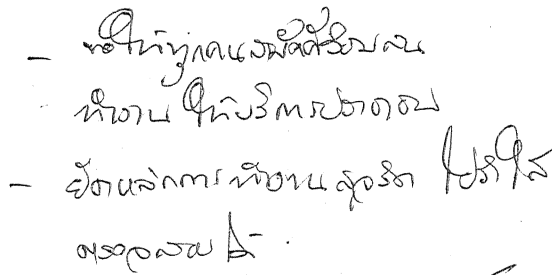 - ขอให้ทุกคนสมัครสมาน
ทำงาน ให้บริการประชาชน
- ยึดหลักการทำงานสุจริต โปร่งใส
ตรวจสอบได้.